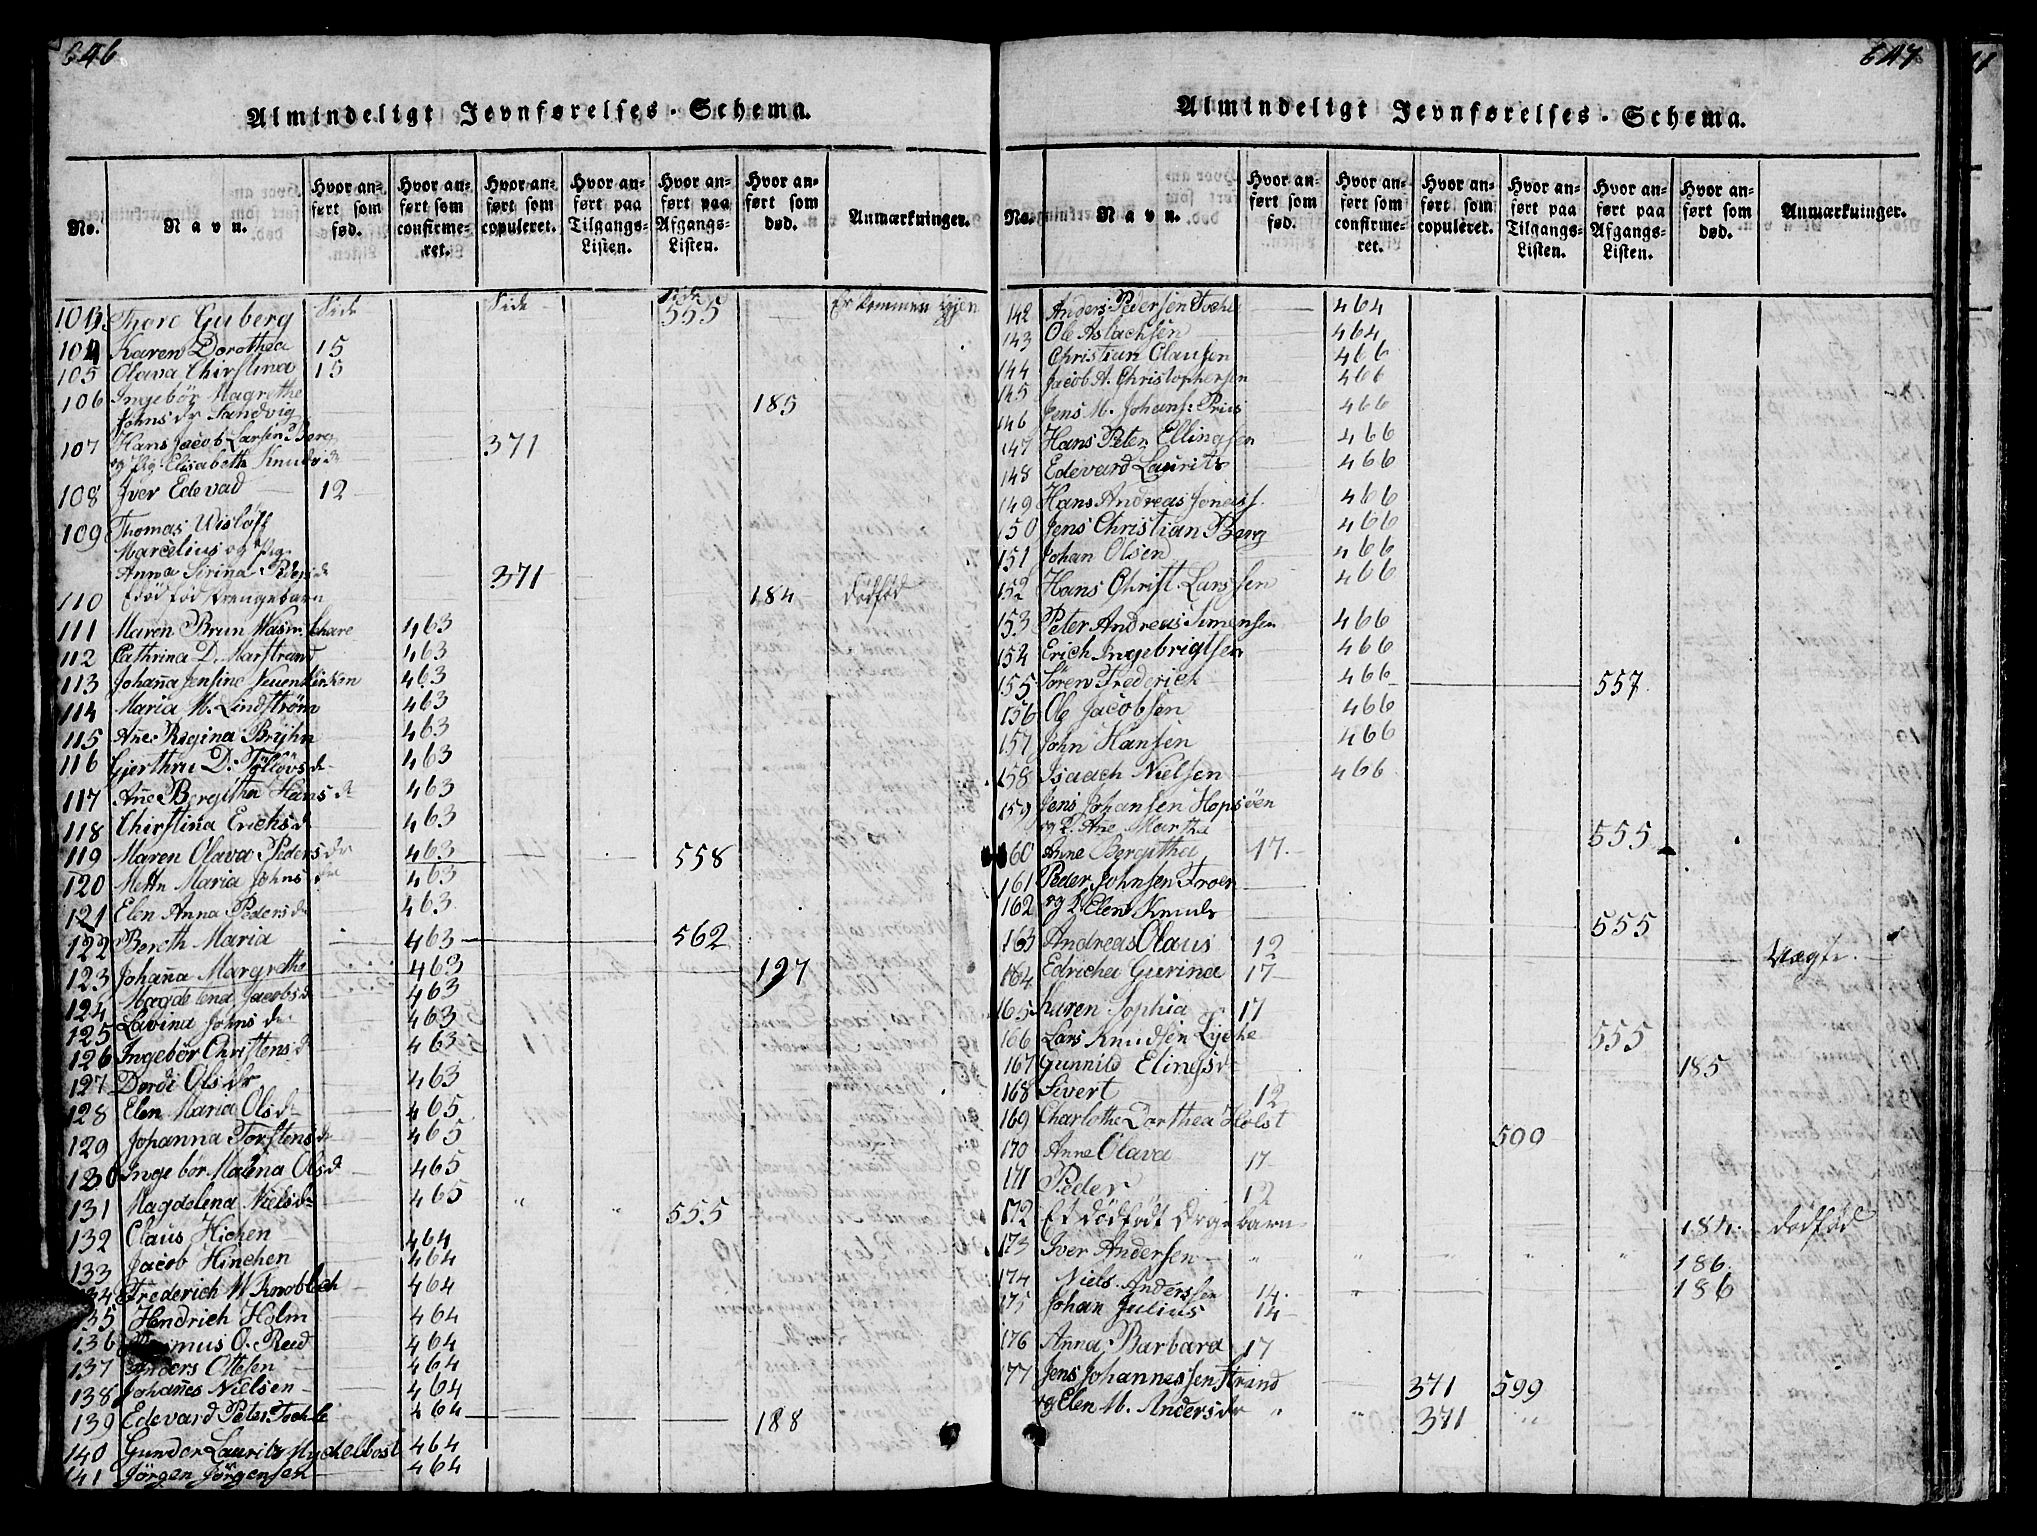 646
Almindeligt Jevnførelses-Schema.
No.
Navn.
Hvor anført som fød.
Hvor anført som confirmeret.
Hvor anført som copuleret.
Hvor anført paa Tilgangs-Listen.
Hvor anført paa Afgangs-Listen.
Hvor anført som død.
Anmærkninger.
103 Thore Guberg Side Side Side 555 Er kommen igjen
104 Karen Dorothea 15
105 Olava Chirstina 15
106 Ingebör Magrethe
Johnsdr Sandvig 185
107 Hans Jacob Larsen Berg
og Pig Elisabeth Knudsd 371
108 Iver Edevad 12
109 Thomas Wisløff
Marcelius og Pig
Anna Sirina Pedersd 371
110 Edød fød drengebarn 184 dødfød
111 Maren Brun Wasm. 463
112 Cathrina D. Marstrand 463
113 Johaña Jensine Neuenkirken 463
114 Maria M. Lindström 463
115 Añe Regina Bryhn 463
116 Gjerthru D. Tølløvsd 463
117 Añe Bergitha Hansd 463
118 Chirstina Erichsd 463
119 Maren Olava Pedersdr 463 558
120 Mette Maria Johnsdr 463
121 Elen Anna Pedersd 463
122 Bereth Maria 463 562
123 Johaña Margrethe 463 197
124 Magdelena Jacobsd 463
125 Lavina Johnsd 463
126 Ingebör Christensd 463
127 Dordi Olsdr 463
128 Elen Maria Olsd 465
129 Johanna Torstensd 465
130 Ingebör Malena Olsd 465
131 Magdelena Nielsd 465 555
132 Claus Hichen 464
133 Jacob Hinchen 464
134 Frederich W. Knobloch 464
135 Hendrich Holm 464
136 Rasmus O. Reed 464
137 Anders Ottesen 464
138 Johañes Nielsen 464
139 Edevard Peter Tochle 464 188
140 Gunder Laurits Myckelbost 464
141 Jörgen Jörgensen 464
647
Almindeligt Jevnførelses-Schema.
No.
Navn.
Hvor anført som fød.
Hvor anført som confirmeret.
Hvor anført som copuleret.
Hvor anført paa Tilgangs-Listen.
Hvor anført paa Afgangs-Listen.
Hvor anført som død.
Anmærkninger.
142 Anders Pedersen Tochle 464
143 Ole Aslachsen 464
144 Christian Clausen 466
145 Jacob A. Christophersen 466
146 Jens M. Johans: Prius 466
147 Hans Peter Ellingsen 466
148 Edevard Laurits 466
149 Hans Andreas Jonass. 466
150 Jens Christian Berg 466
151 Johan Olsen 466
152 Hans Christ. Larssen 466
153 Peter Andreas Simensen 466
154 Erich Ingebrigtsen 466
155 Sören Frederich 466 557
156 Ole Jacobsen 466
157 John Hansen 466
158 Isaach Nielsen 466
159 Jens Johansen Hopsöen
og P. Añe Martha 555
160 Anne Bergitha 17
161 Peder Johnsen Froen
162 og P. Elen Knuds 555
163 Andreas Olaus 12 Uægte.
164 Edricha Gurina 17
165 Karen Sophia 17
166 Lars Knudsen Lyche 555
167 Gunnild Elingsd 185
168 Sivert 12
169 Charlothe Dorthea Holst 500
170 Anne Olava 17
171 Peder 12
172 Et dödfödt Drgebarn 184. dødfød
173 Iver Andersen 186
174 Niels Anderssen 14 186
175 Johan Julius 14
176 Anna Barbara 17
177 Jens Johannessen Strand 371 599
og Elen M. Andersdr 371